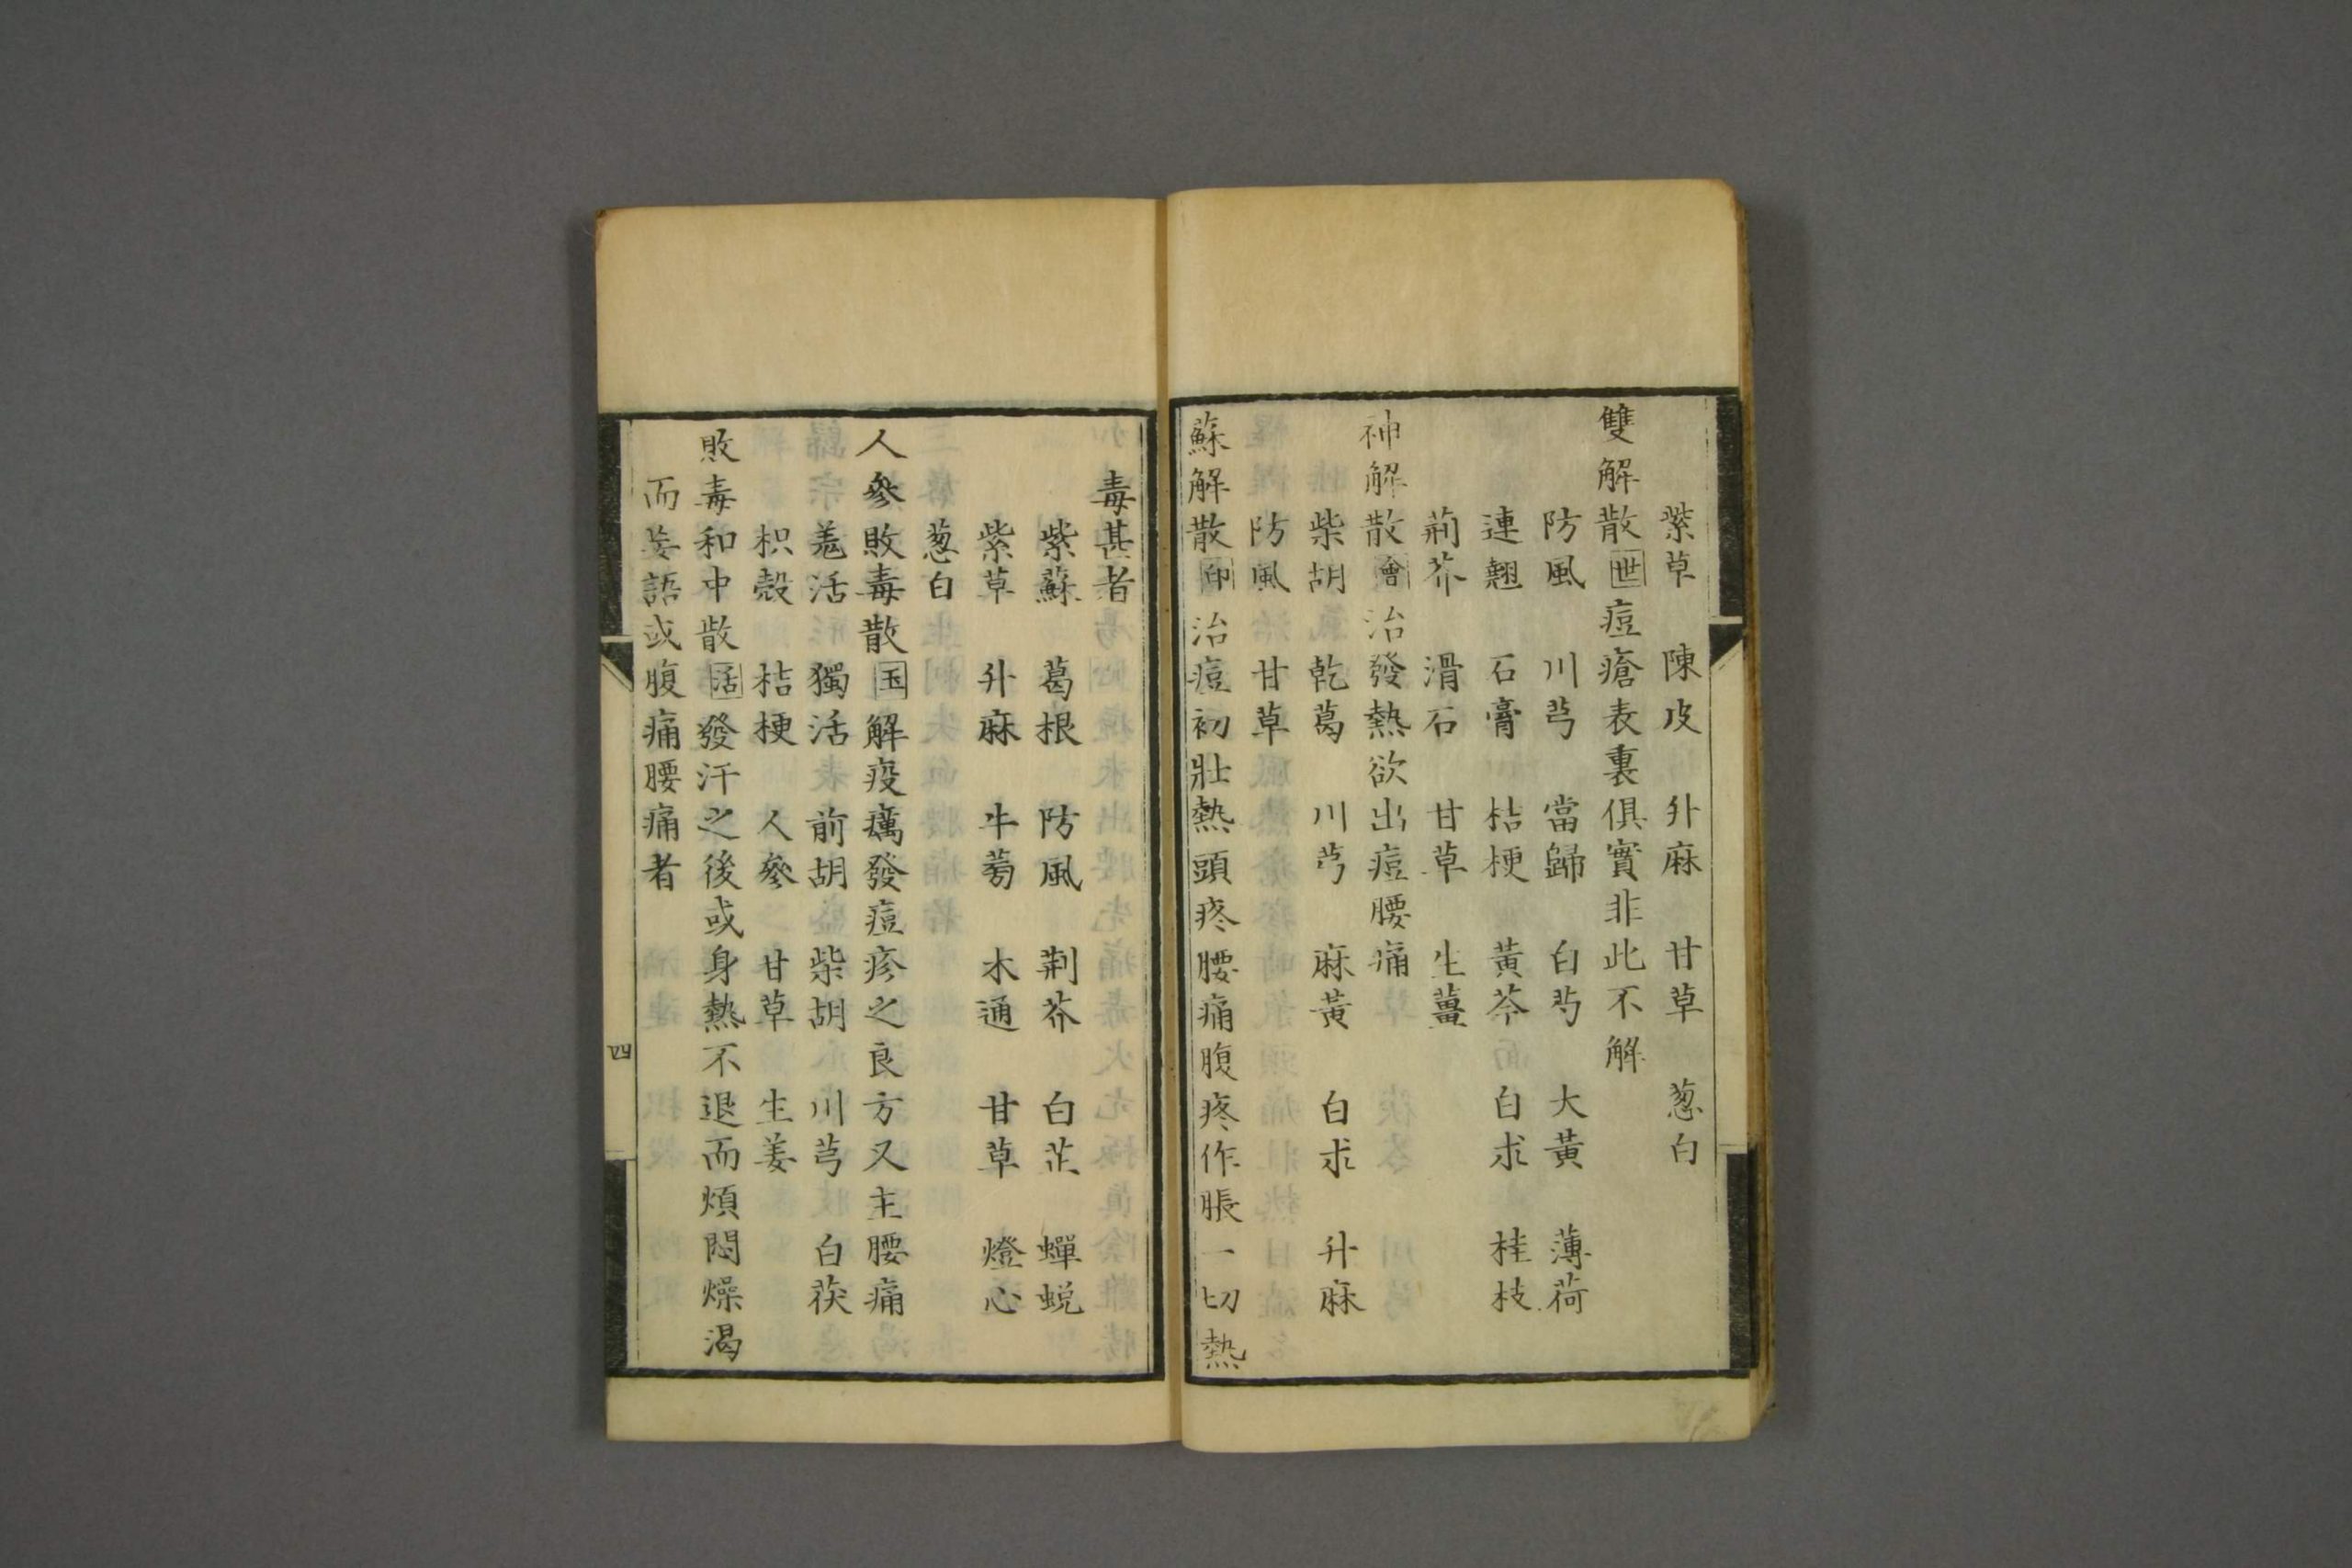 紫草　陳皮　升麻　甘草　葱白
雙解散世痘瘡表裏俱實非此不解
防風　川芎　當歸　白芍　大黃　薄荷
連翹　石膏　桔梗　黃芩　白朮　桂枝
荊芥　滑石　甘草　生薑
神解散會治發熱欲出痘腰痛
柴胡　乾葛　川芎　麻黃　白朮　升麻
防風　甘草
蘇解散印治痘初壯熱頭疼腰痛腹疼作脹一切熱
毒甚者
紫蘇　葛根　防風　荆芥　白芷　蟬蛻
紫草　升麻　牛蒡　木通　甘草　燈心
葱白
人參敗毒散玉解疫癘發痘疹之良方又主腰痛
羗活　獨活　前胡　柴胡　川芎　白茯
枳殼　桔梗　人參　甘草　生姜
敗毒和中散活發汗之後或身熱不退而煩悶燥渴
而妄語或腹痛腰痛者
四